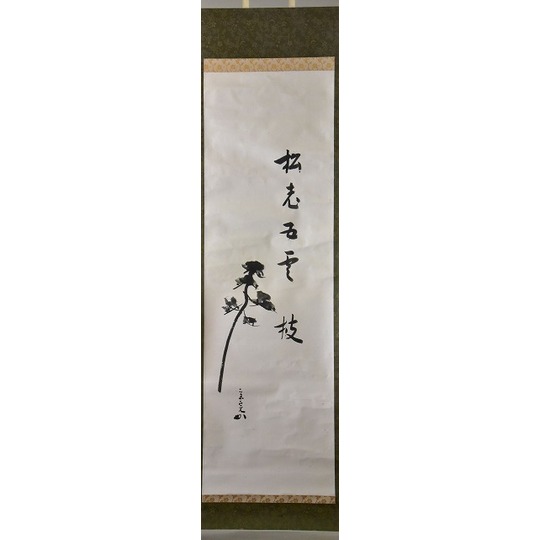 松老五雲披